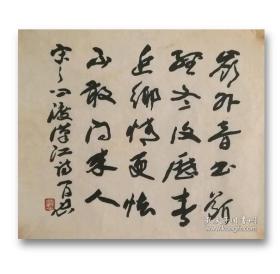 岭外音书断
经冬复历春
近乡情更怯
不敢问来人
宋之问渡汉江诗